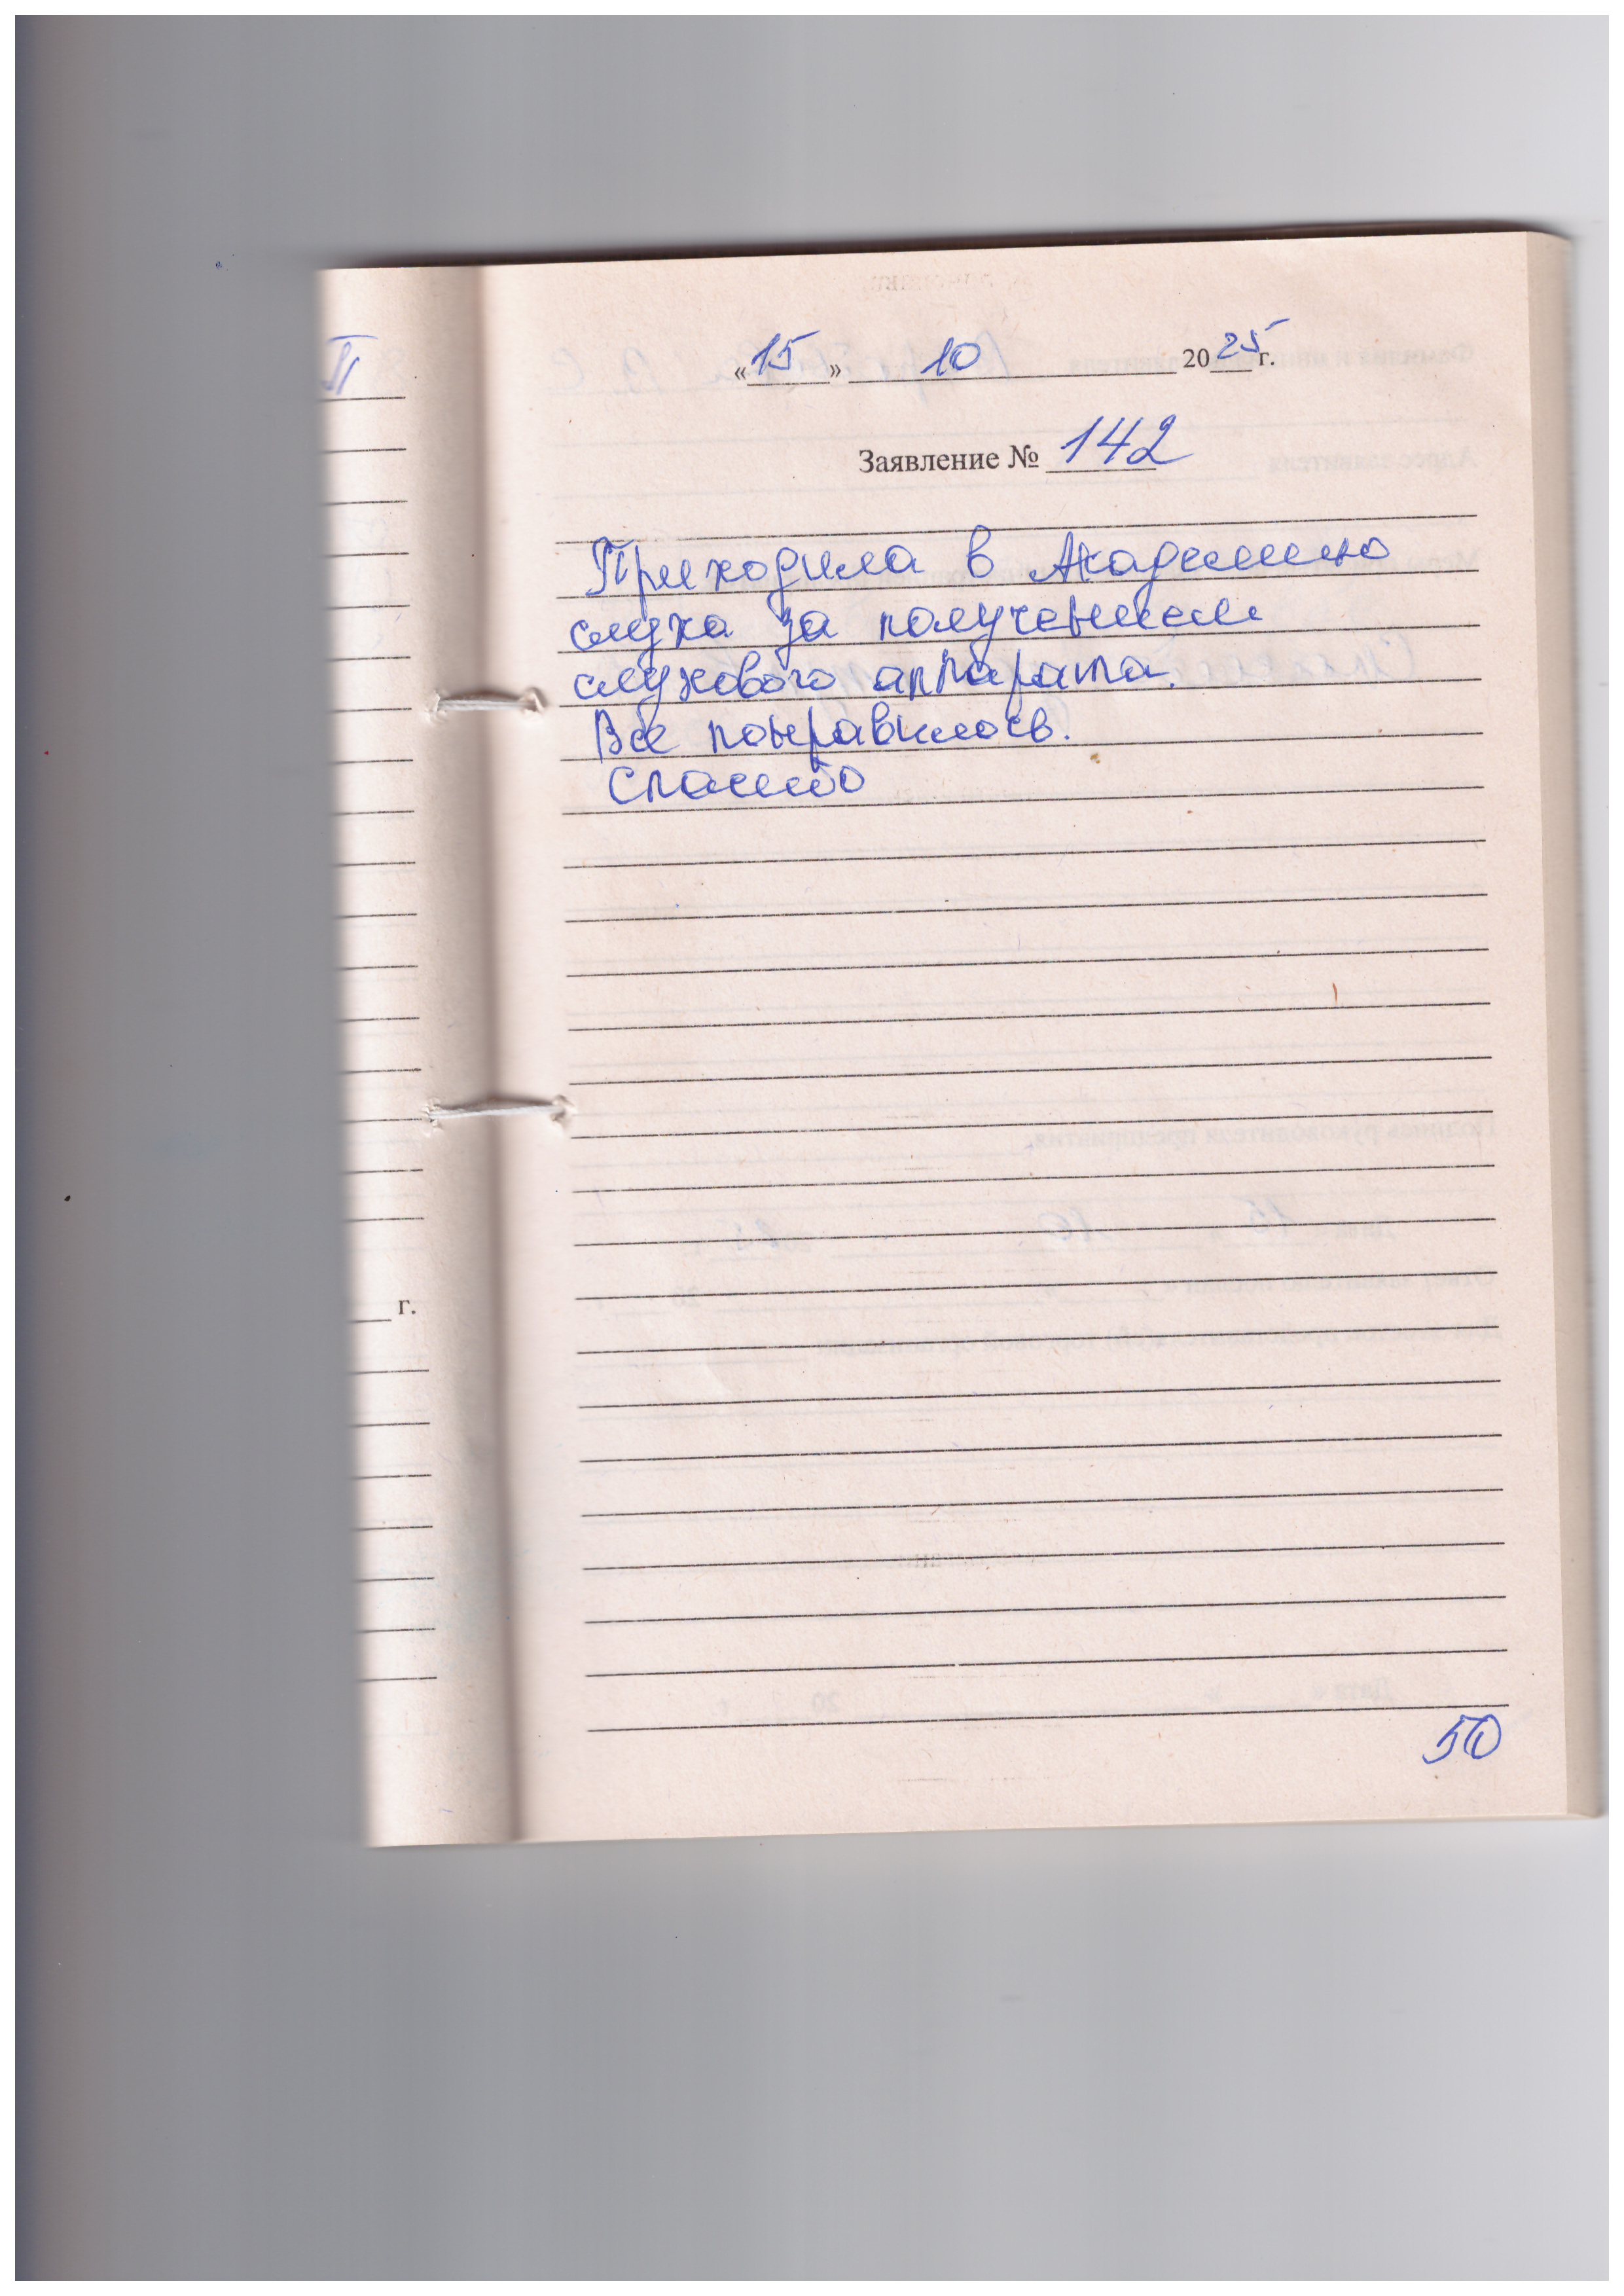 «15» 10 2025 г.
Заявление № 142
Приходила в Академию
слуха за получением
слухового аппарата.
Все понравилось.
Спасибо
г.
50